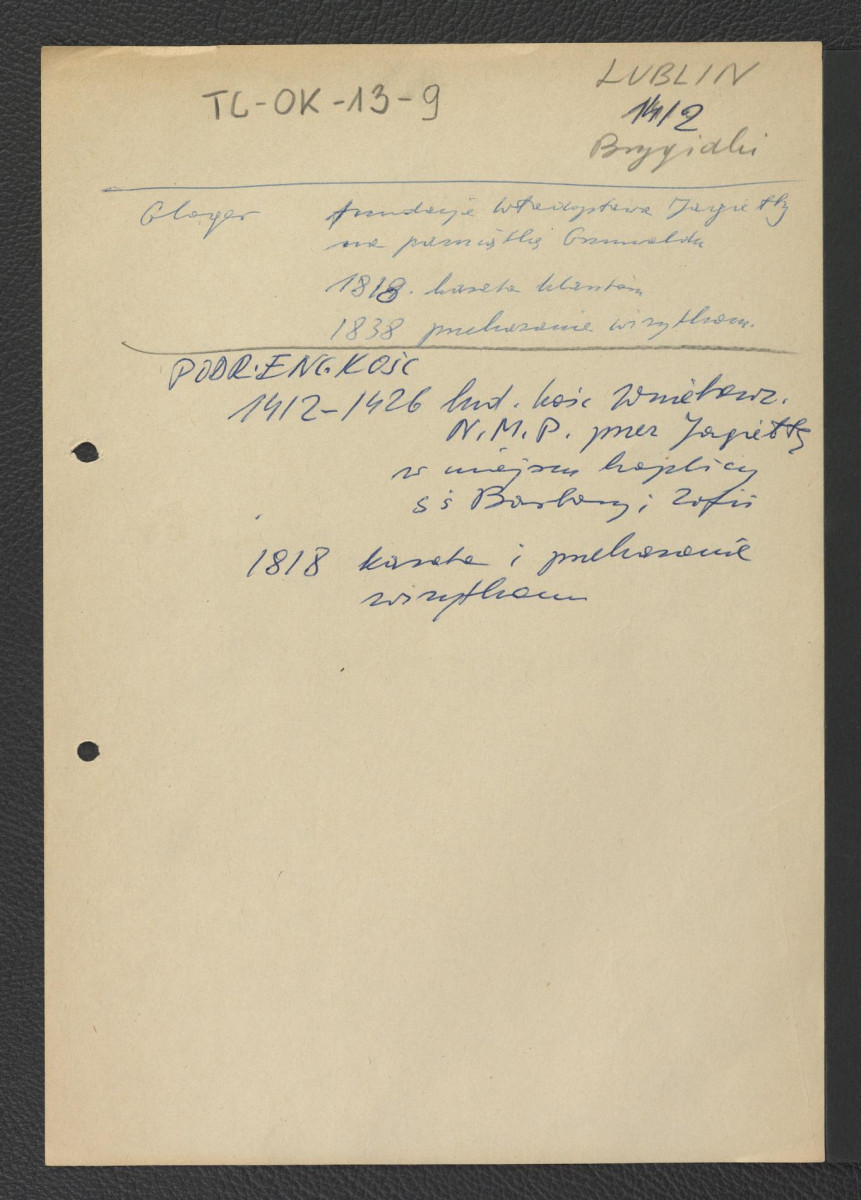 TC-OK-13-9
LUBLIN
1412
Brygidki
Gloger fundacja Władysława Jagiełły
na pamiątkę Grunwaldu
1818. kasata klasztoru
1838 przekazanie wizytkom.
PODR. ENC. KOŚC
1412-1426 bud. kość. Wniebowz.
N.M.P. przez Jagiełłę
w miejscu kaplicy
śś Barbary i Zofii
1818 kasata i przekazanie
wizytkom